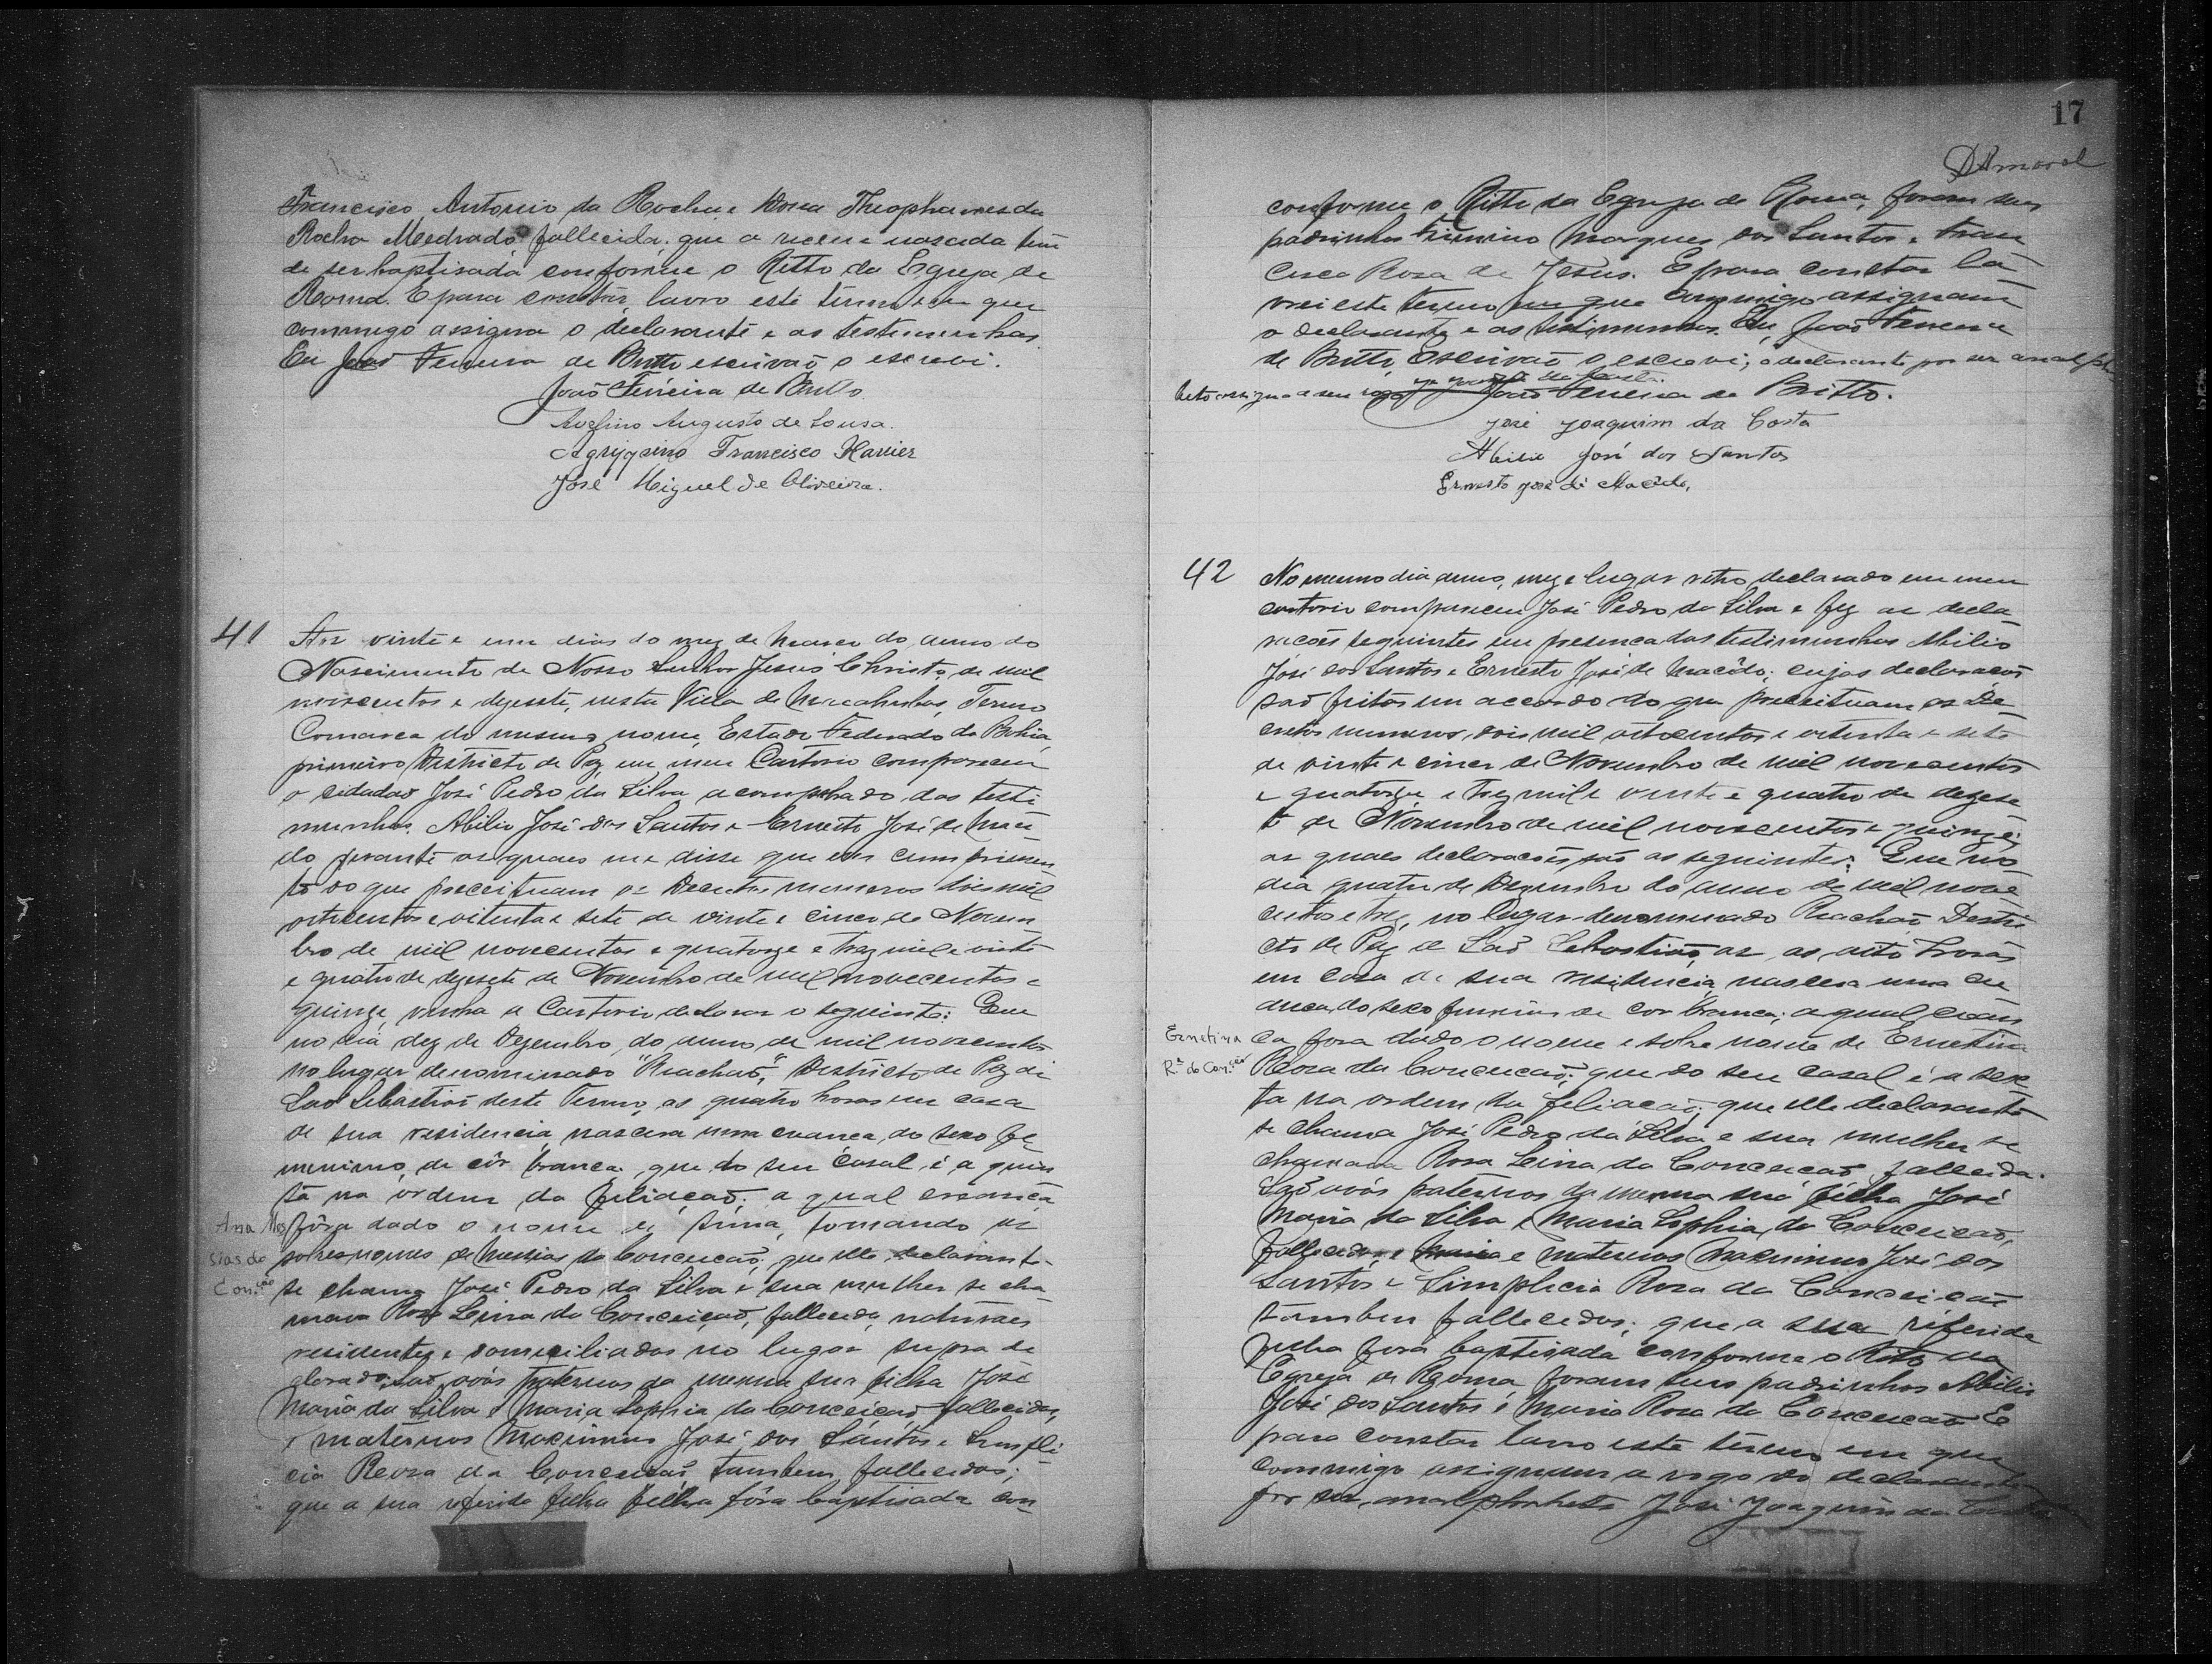 Francisco Antonio da Rocha e Dona Theophanes da
Rocha Medrado fallecida; que a recem nascida tem
de ser baptisada conforme o Ritto da Egreja de
Roma. E para constar, lavro este termo em que
commigo assigna o declarante e as testemunhas
Eu João Ferreira de Britto escrivão o escrevi.
João Ferreira de Britto.
Avelino Augusto de Sousa.
Agripino Francisco Xavier
José Miguel de Oliveira.
41
Aos vinte e um dias do mez de Março do anno do
Nascimento de Nosso Senhor Jesus Christo de mil
novecentos e dezesete, nesta Villa de Macahubas, Termo
Comarca do mesmo nome, Estado Federado da Bahia,
primeiro Districto de Paz, em meu Cartorio compareceu
o cidadão José Pedro da Silva acompanhado das teste
munhas Abilio José dos Santos e Ernesto José de Macê
do perante as quaes me disse que em cumprimen
to do que preceituam os Decretos numeros dois mil
oitocentos e oitenta e sete de vinte e cinco de Novem
bro de mil novecentos e quatorze e trez mil e vinte
e quatro de dezesete de Novembro de mil novecentos e
quinze, vinha a Cartorio declarar o seguinte: Que
no dia dez de Dezembro do anno de mil novecentos
no lugar denominado "Riachão", Districto de Paz de
São Sebastião deste Termo, as quatro horas em casa
de sua residencia nascera uma creança, do sexo fe
menino, de côr branca que do seu casal é a quin
ta na ordem da filiação; a qual creança
Ana Mes fôra dado o nome de Anna, tomando os
sias da sobrenomes de Messias da Conceição; que elle declarante
Con.ção se chama José Pedro da Silva e sua mulher se cha
mava Rosa Leina da Conceição, fallecida, naturaes
residentes e domiciliados no lugar supra de
clarado; são avós paternos da mesma sua filha José
Maria da Silva e Maria Sophia da Conceição fallecidos,
e maternos Maximino José dos Santos e Simpli
cia Roza da Conceição, tambem fallecidos;
que a sua referida filha filha fôra baptisada con
17
D'Amaral
conforme o Ritto da Egreja de Roma, foram seus
padrinhos Firmino Marques dos Santos e Fran
cisca Rosa de Jesus. E para constar la
vrei este termo em que commigo assignam
o declarante e as testemunhas. Eu, João Ferreira
de Britto Escrivão o escrevi; o declarante por ser analpha
beto assigna a seu rogo
João Ferreira de Britto.
José Joaquim da Costa
Abilio José dos Santos
Ernesto José de Macêdo,
42
No mesmo dia anno, mez e lugar retro declarado em meu
cartorio compareceu José Pedro da Silva e fez as decla
rações seguintes em presença das testemunhas Abilio
José dos Santos e Ernesto José de Macêdo; cujas declarações
são feitas em accordo do que preceituam os De
cretos numeros, dois mil oitocentos e oitenta e sete
de vinte e cinco de Novembro de mil novecentos
e quatorze e trez mil e vinte e quatro de dezese
te de Novembro de mil novecentos e quinze;
as quaes declarações são as seguintes: Que no
dia quatro de Dezembro do anno de mil nove
centos e trez, no lugar denominado Riachão Distri
cto de Paz de São Sebastião, as oito horas
em casa de sua residencia, nascera uma cre
ança, do sexo feminino de cor branca; a qual crean
Ernetina ça fora dado o nome e sobre nome de Ernetina
R.ª da Con.ção Rosa da Conceição; que do seu casal é a sex
ta na ordem da filiação; que elle declarante
se chama José Pedro da Silva e sua mulher se
chamava Rosa Leina da Conceição, fallecida.
São avós paternos da mesma sua filha José
Maria da Silva e Maria Sophia da Conceição,
fallecidos, e maternos Maximino José dos
Santos e Simplicia Roza da Conceição
tambem fallecidos; que a sua referida
filha fora baptisada conforme o Rito da
Egreja de Roma foram seus padrinhos Abilio
José dos Santos e Maria Rosa da Conceição E
para constar lavro este termo em que
commigo assignam a rogo do declarante
por ser, analphabeto José Joaquim da Costa